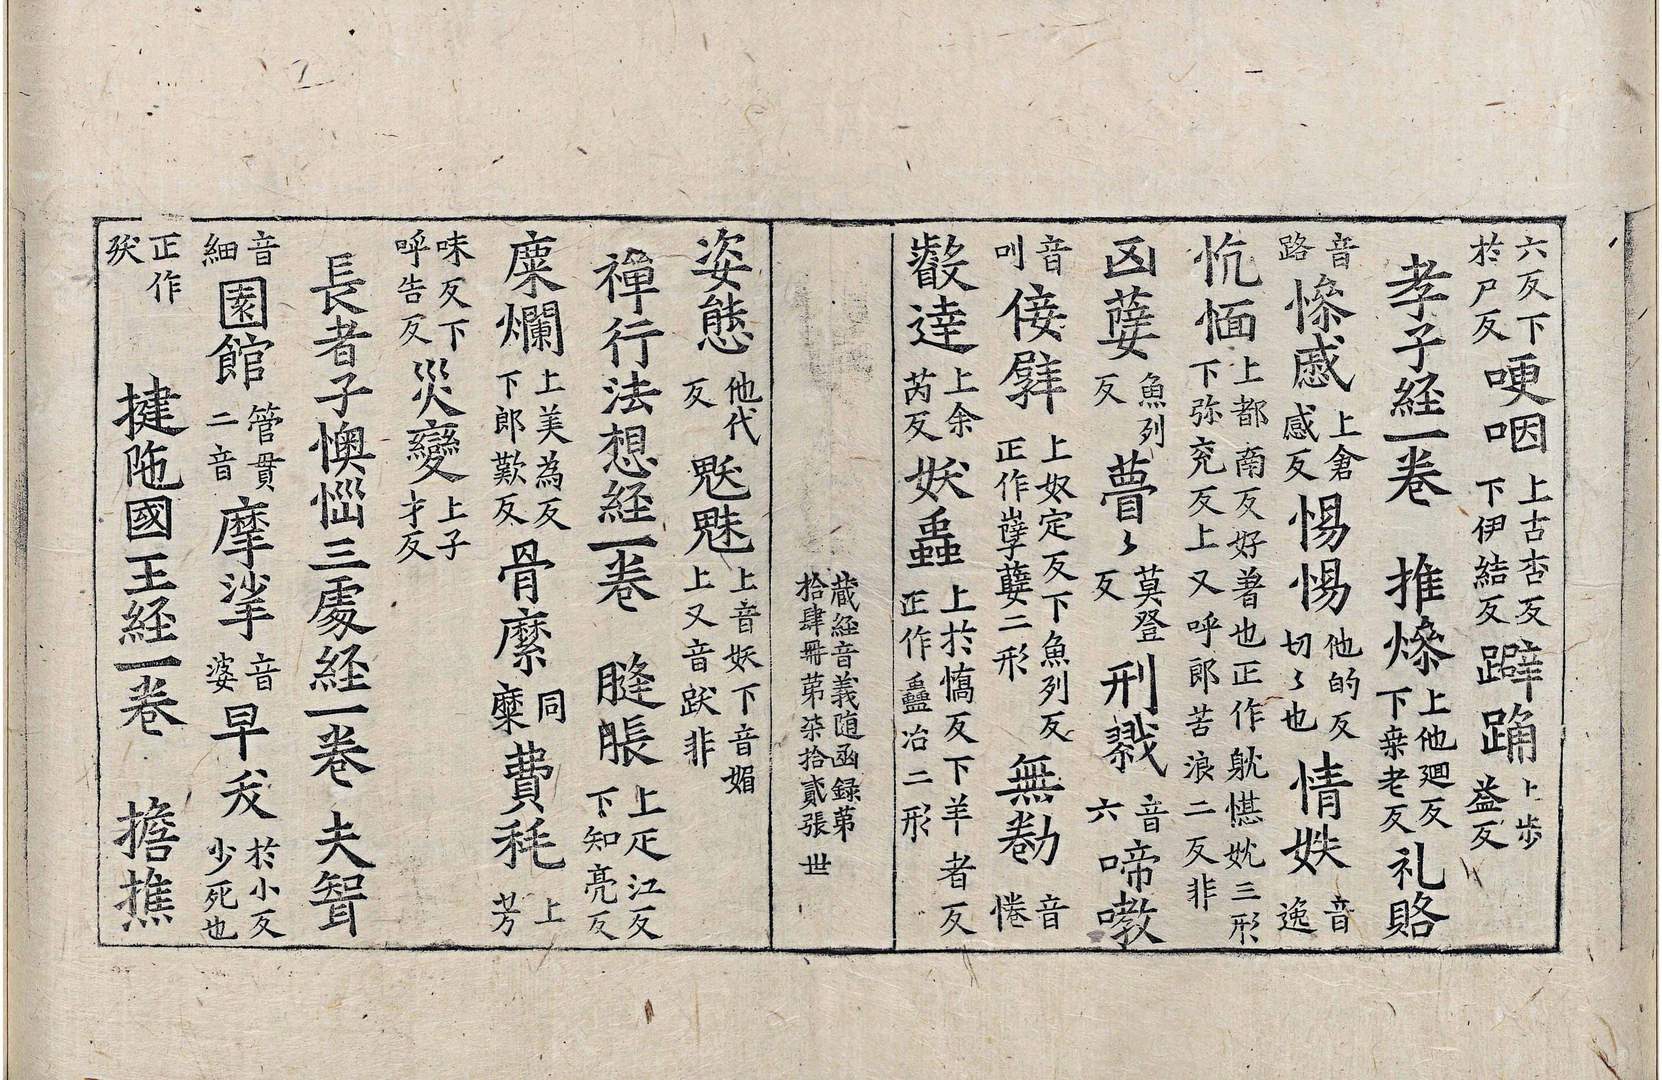 六反下於尸反哽咽上古杏反下伊結反躃踊上步益反
孝子経一卷 推燎上他廻反下桒老反礼賂
音路慘慼上倉感反惕惕他的反切〻也情妷音逸
恍愐上都南反好著也正作躭愖妉三形下弥兖反上又呼郎苦浪二反非
凶薩魚列反薨〻莫登反刑戮音六啼嗷
音叫佞孼上奴定反下魚列反正作孽櫱二形無勌音惓
叡達上余芮反妖蠱上於憍反下羊者反正作蠱冶二形
藏経音義随函録第拾肆冊第柒拾貳張 世
姿態他代反魃魅上音妖下音媚上又音跋非
禪行法想経一卷 膖脹上疋江反下知亮反
糜爛上美為反下郎歎反骨縻同糜費秏上芳
味反下呼告反災變上子才反
長者子懊惱三處経一卷 夫智
音細園館管貫二音摩挲音婆早夭於小反少死也
正作殀 揵陁國王経一卷 擔撨